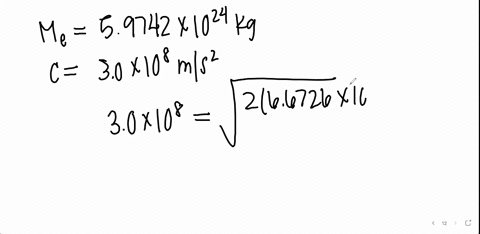 Me = 5.9742 × 10²⁴ kg
C = 3.0 × 10⁸ m/s²
3.0 × 10⁸ = √2(6.6726 × 10